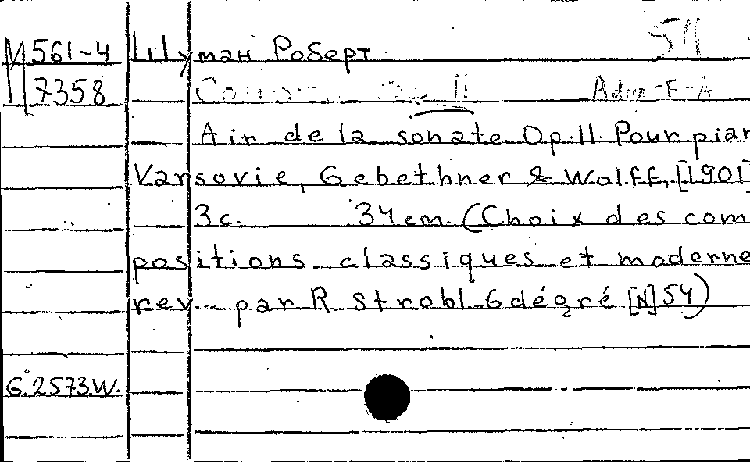 М 561-4 Шуман Роберт. 54
7358 II
Air de la sonate Op.11 Pour pian
Varsovie, Gebethner & Wolff, [1901]
3c. 34 cm. (Choix des com
positions classiques et moderne
rev. par R Strobl 6 dégré [N] 54)
G.2573W.